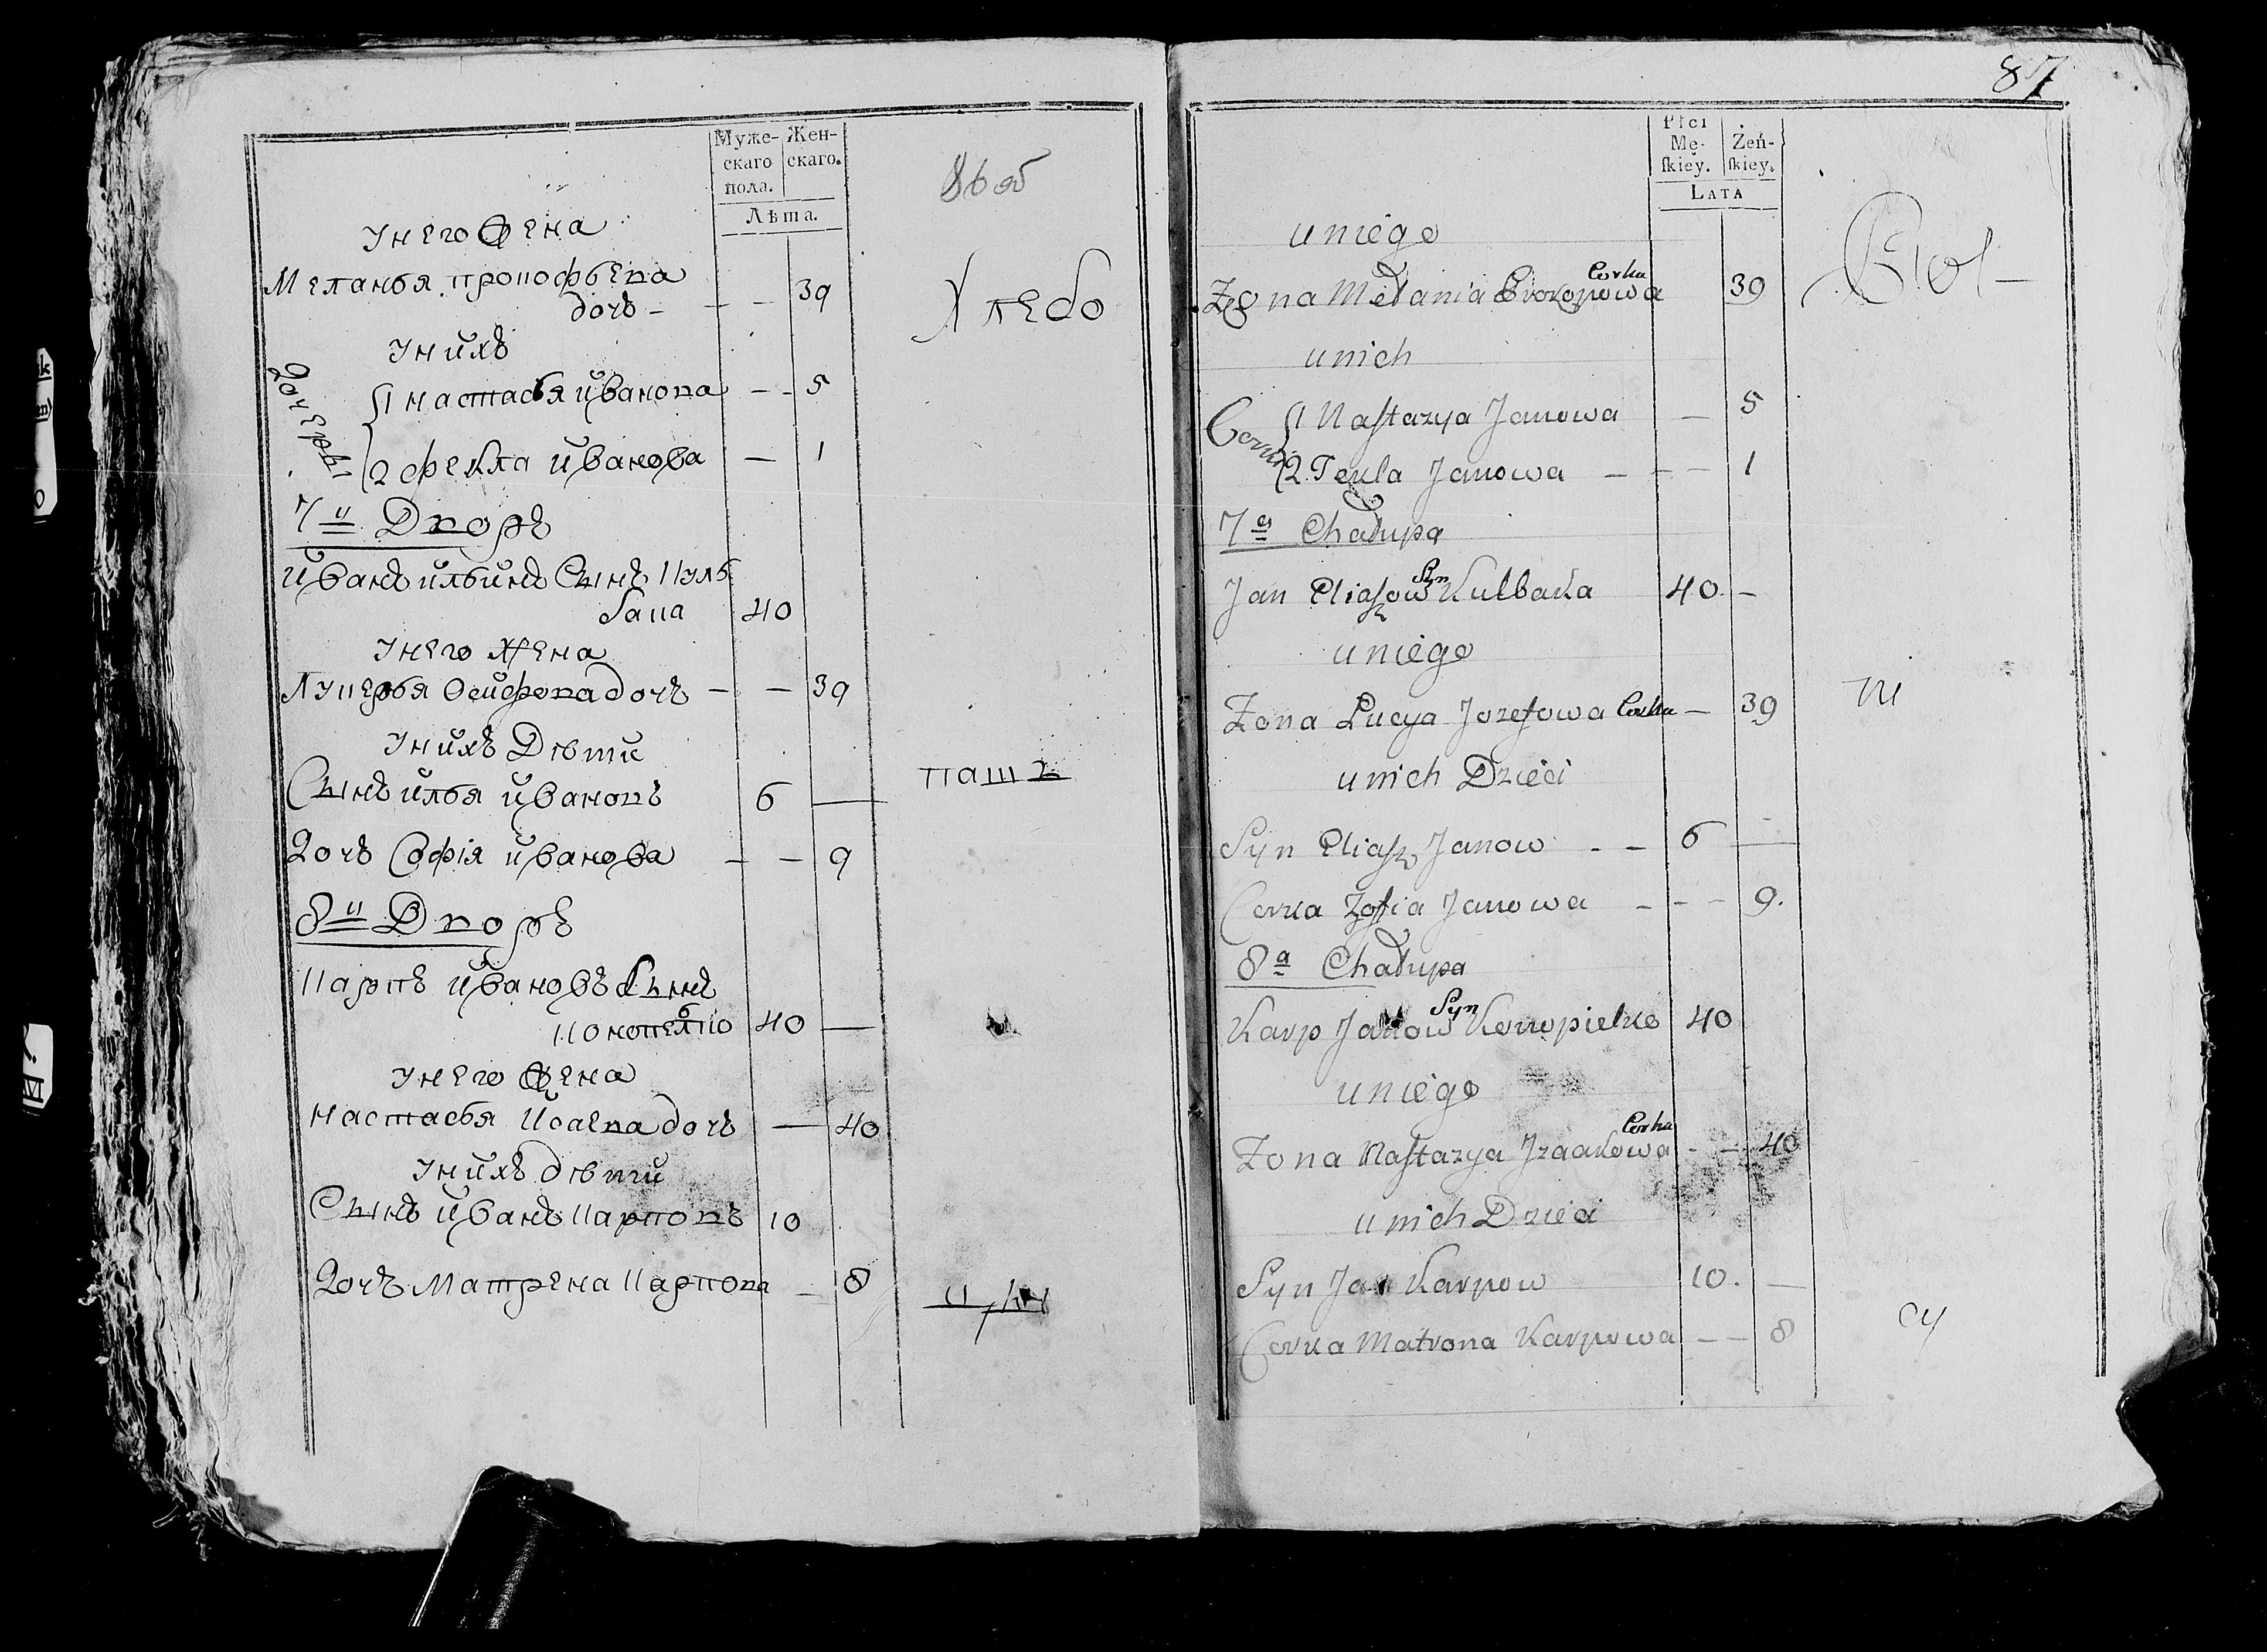 Муже-
скаго
пола.
Жен-
скаго.
Лѣта.
86 об
У него жена
Меланья прокофьева
дочь — — — 39
Хлебо
У нихъ
Дочеры
1 настасья Иванова — - 5
2 фекла Иванова — 1
7й Дворъ
Иванъ ильинъ Сынъ Куль
бака 40
У него жена
Лукерья Осифова дочь — — 39
У нихъ Дѣти
Сынъ илья Ивановъ 6 —
пашъ
Дочь Софія Иванова — — 9
8й Дворъ
Карпъ Ивановъ Сынъ
Конопелько 40 —
У него жена
настасья Исаева дочь — 40
У нихъ дѣти
Сынъ Иванъ Карповъ 10
Дочь Матрена Карпова — 8
87
Płci
Mę-
ſkiey.
Żeń-
ſkiey.
LATA
u niego
Corka
Zona Melania Prokopowa 39
u nich
Corki
1 Naſtazya Janowa — 5
2 Tekla Janowa — - — 1
7a Chałupa
Syn
Jan Eliaſzow Kulbaka 40. —
u niego
Zona Łucya Jozefowa Corka — 39
u nich Dzieci
Syn Eliaſz Janow - — 6 —
Corka Zofia Janowa - - - 9.
8a Chałupa
Syn
Karp Janow Konopielko 40
u niego
Corka
Zona Naſtazya Jzaakowa - — 40
u nich Dzieci
Syn Jan Karpow 10. —
Corka Matrona Karpowa — — 8